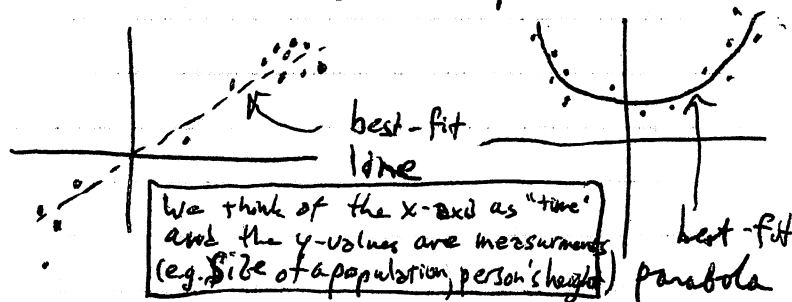 best-fit
line
We think of the x-axis as "time"
and the y-values are measurments
(e.g. Size of a population, person's height)
best-fit
parabola